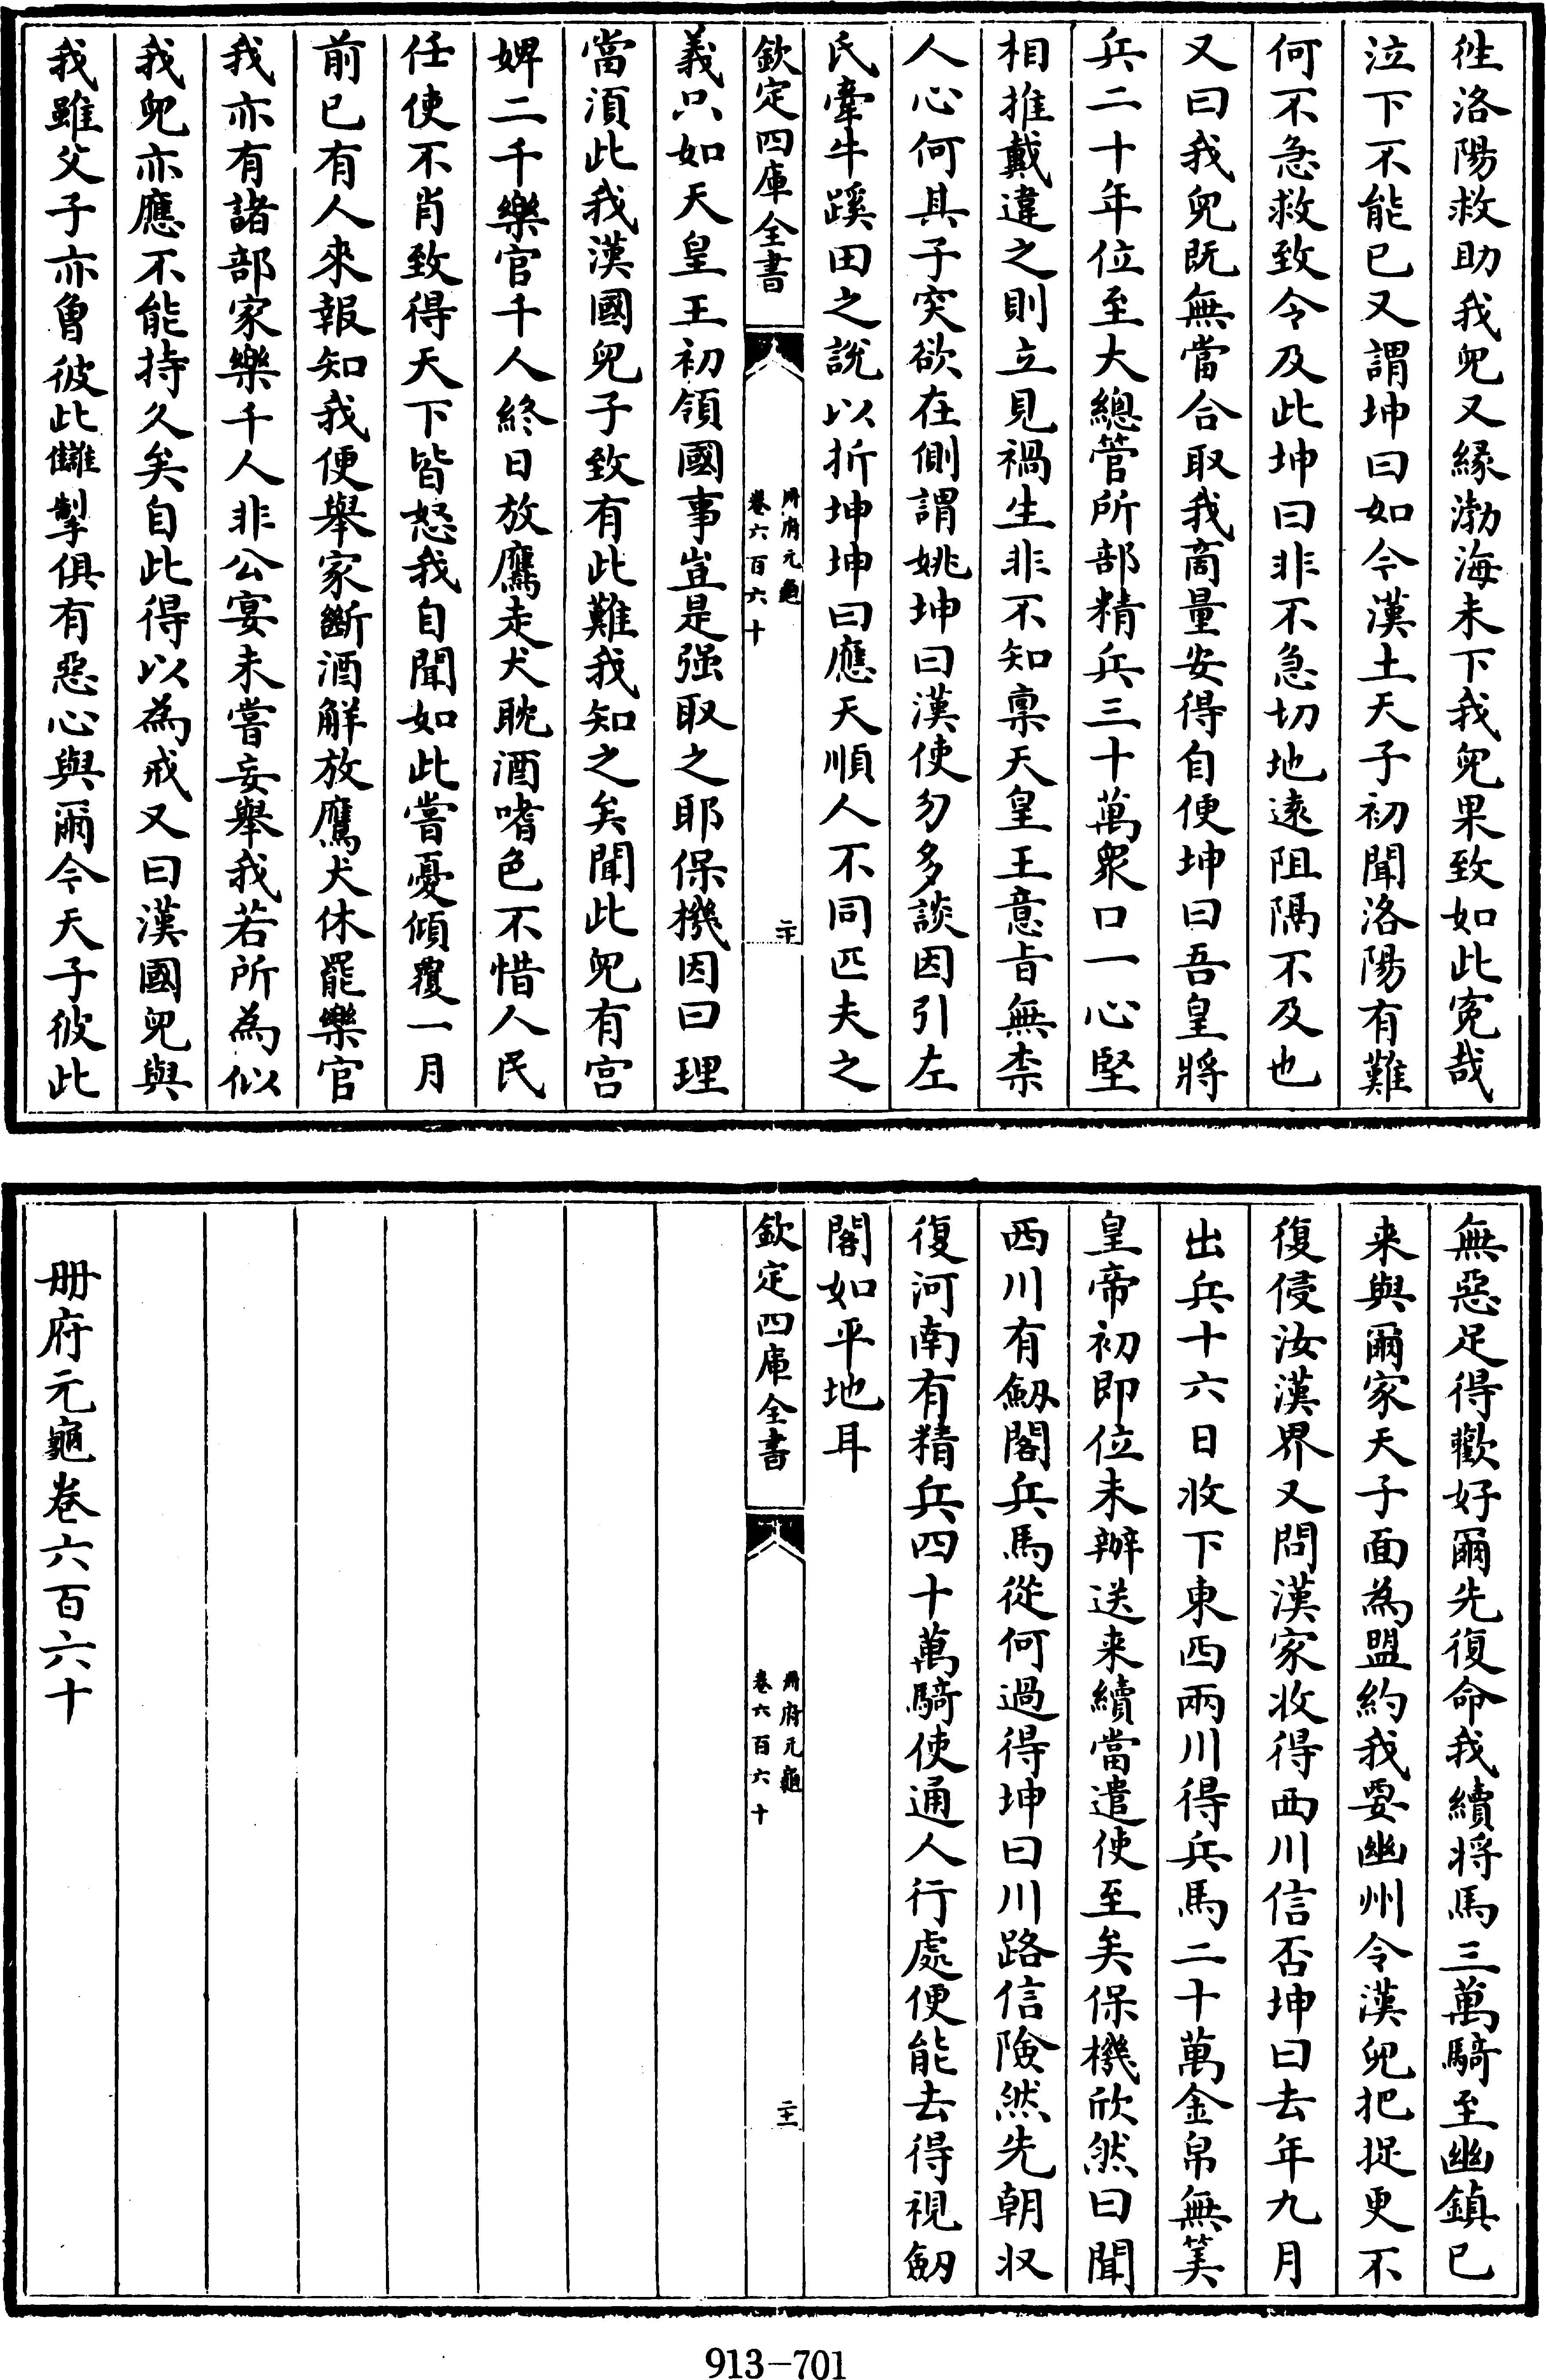 徃洛陽救助我兒又緣渤海未下我兒果致如此寃哉
泣下不能已又謂坤曰如今漢土天子初聞洛陽有難
何不急救致令及此坤曰非不急切地逺阻隔不及也
又曰我兒既無當合取我商量安得自便坤曰吾皇將
兵二十年位至大總管所部精兵三十萬衆口一心堅
相推戴違之則立見禍生非不知禀天皇王意旨無柰
人心何其子突欲在側謂姚坤曰漢使勿多談因引左
氏牽牛蹊田之說以折坤坤曰應天順人不同匹夫之
欽定四庫全書
冊府元龜
卷六百六十
二十
義只如天皇王初領國事豈是强取之耶保機因曰理
當湏此我漢國兒子致有此難我知之矣聞此兒有宫
婢二千樂官千人終日放鷹走犬躭酒嗜色不惜人民
任使不肖致得天下皆怒我自聞如此嘗憂傾覆一月
前已有人來報知我便舉家斷酒解放鷹犬休罷樂官
我亦有諸部家樂千人非公宴未嘗妄舉我若所為似
我兒亦應不能持久矣自此得以為戒又曰漢國兒與
我雖父子亦曾彼此讎掣俱有惡心與爾今天子彼此
無惡足得歡好爾先復命我續將馬三萬騎至幽鎮已
来與爾家天子面為盟約我要幽州令漢兒把捉更不
復侵汝漢界又問漢家收得西川信否坤曰去年九月
出兵十六日收下東西兩川得兵馬二十萬金帛無筭
皇帝初即位未辦送来續當遣使至矣保機欣然曰聞
西川有劒閣兵馬從何過得坤曰川路信險然先朝収
復河南有精兵四十萬騎使通人行處便能去得視劒
閣如平地耳
欽定四庫全書
冊府元龜
卷六百六十
二十一
冊府元龜卷六百六十
913-701